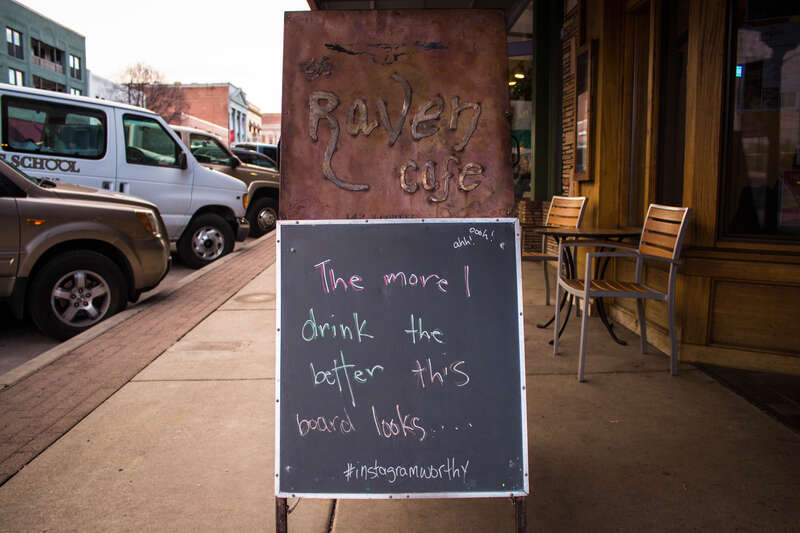 The Raven
cafe
SCHOOL
ahh! oooh!
The more I
drink the
better this
board looks....
#instagramworthy